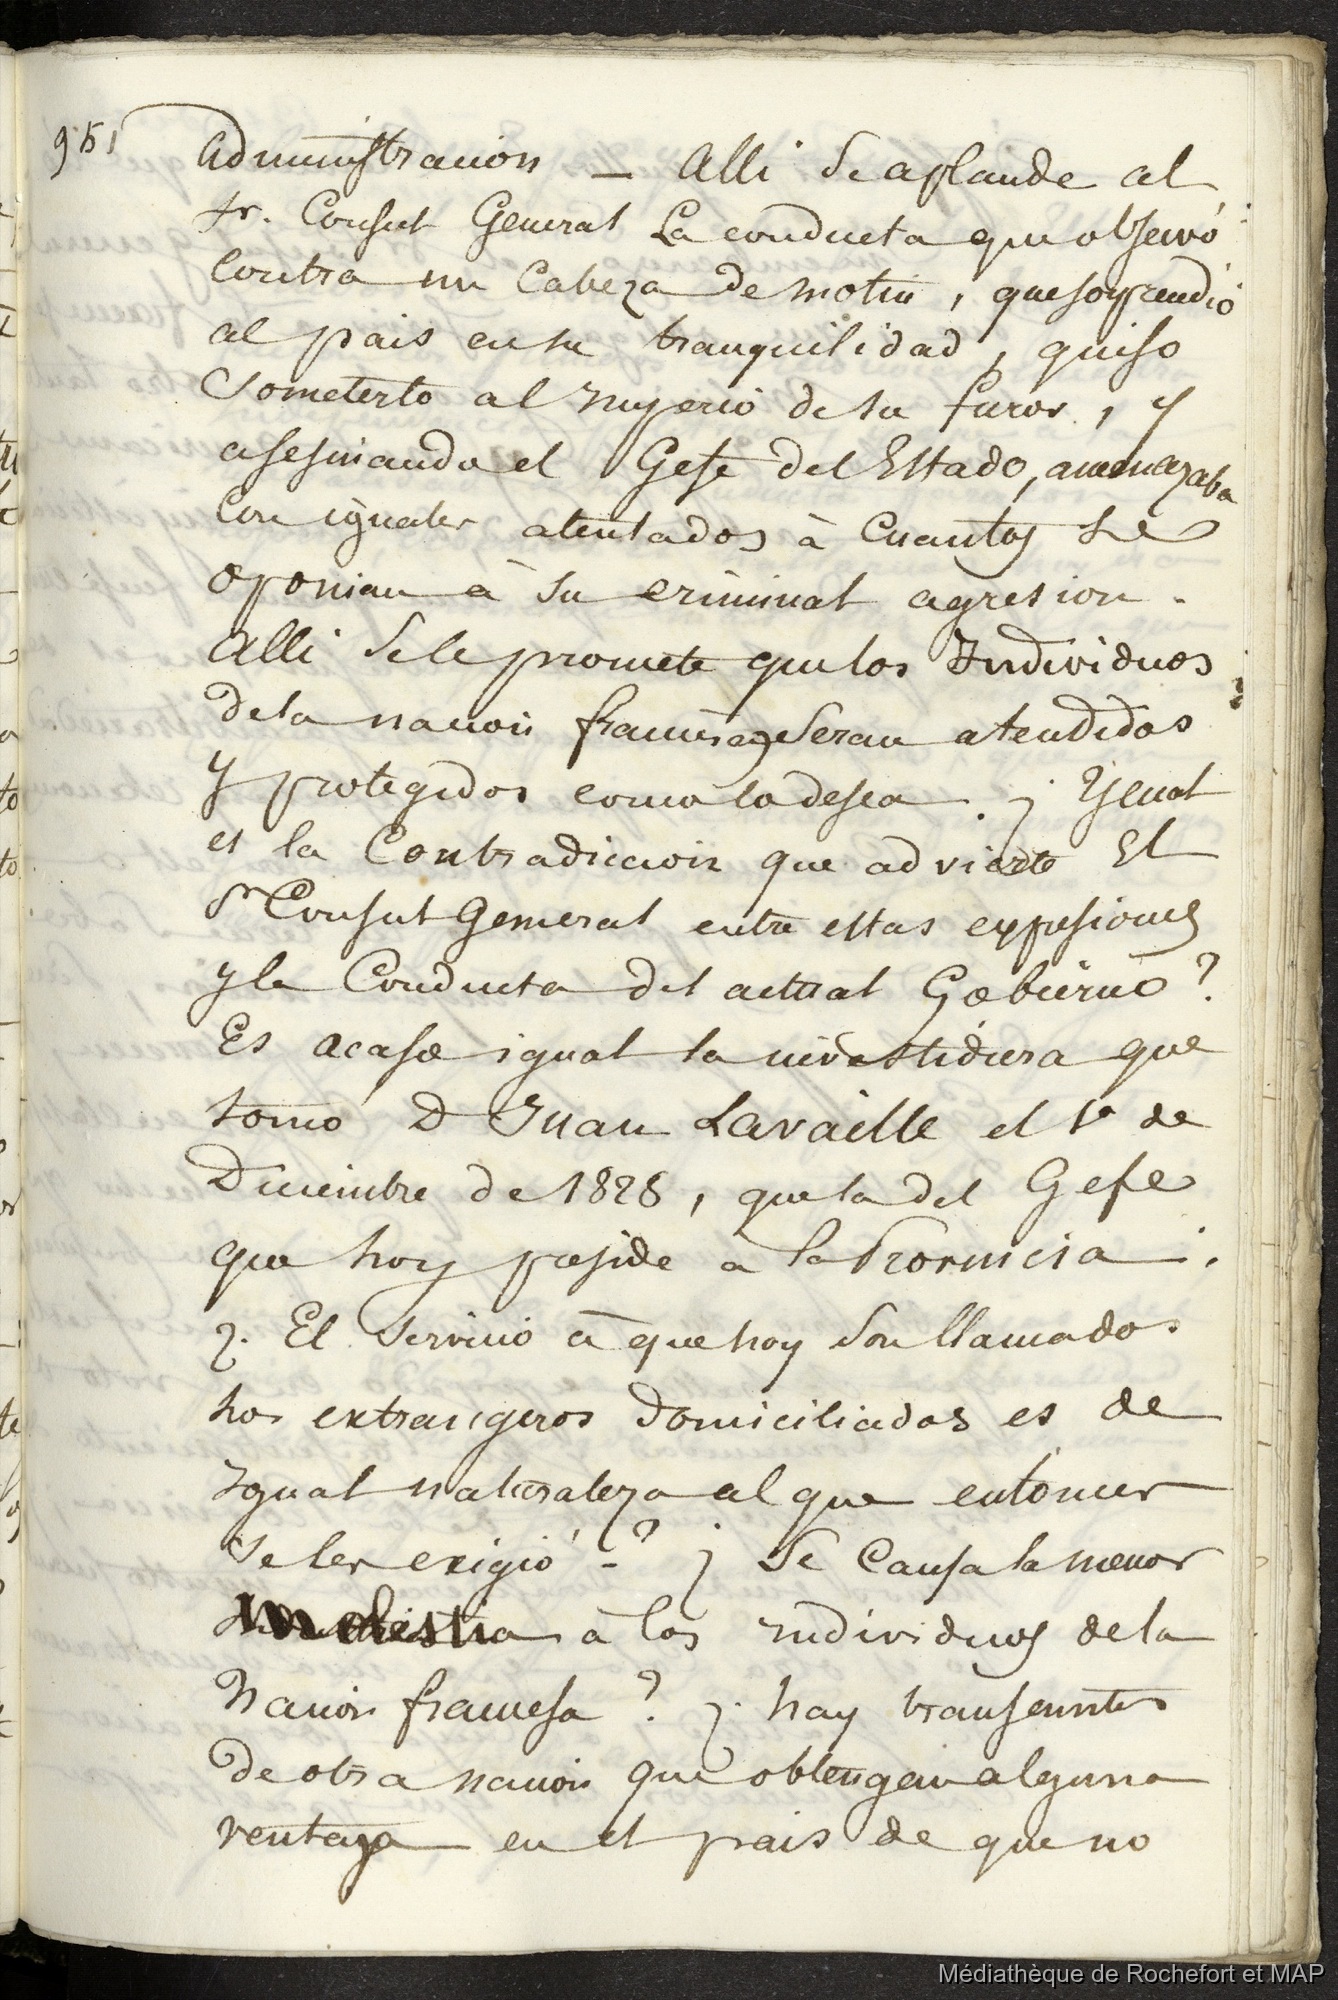 951
administracion — Alli se aplaude al
Sr. Consul General La conducta que observó
Contra un Cabeza de motin, que sorprendió
al pais en su tranquilidad, quiso
Someterlo al Imperio de su furor, y
asesinando el Gefe del Estado, amenazaba
Con iguales atentados à Cuantos se
oponian à su criminal agresion.
Alli se le promete que los Individuos
de la nacion francesa Seran atendidos
y protegidos como lo desea. ¿ Ygual
es la Contradiccion que advierte El
Sr Consul General entre estas expresiones
y la Conducta del actual Gobierno?
Es acaso igual la investidura que
tomó D Juan Lavaille el 1º de
Diciembre de 1828, que la del Gefe
que hoy preside a la Provincia.
¿. El Servicio à que hoy Son llamados
los extrangeros domiciliados es de
Igual naturaleza al que entonces
Se les exigió -? ¿ Se Causa la menor
molestia à los Individuos de la
Nacion francesa? ¿. hay transeuntes
de otra nacion que obtengan alguna
ventaja en el pais de que no
Médiathèque de Rochefort et MAP